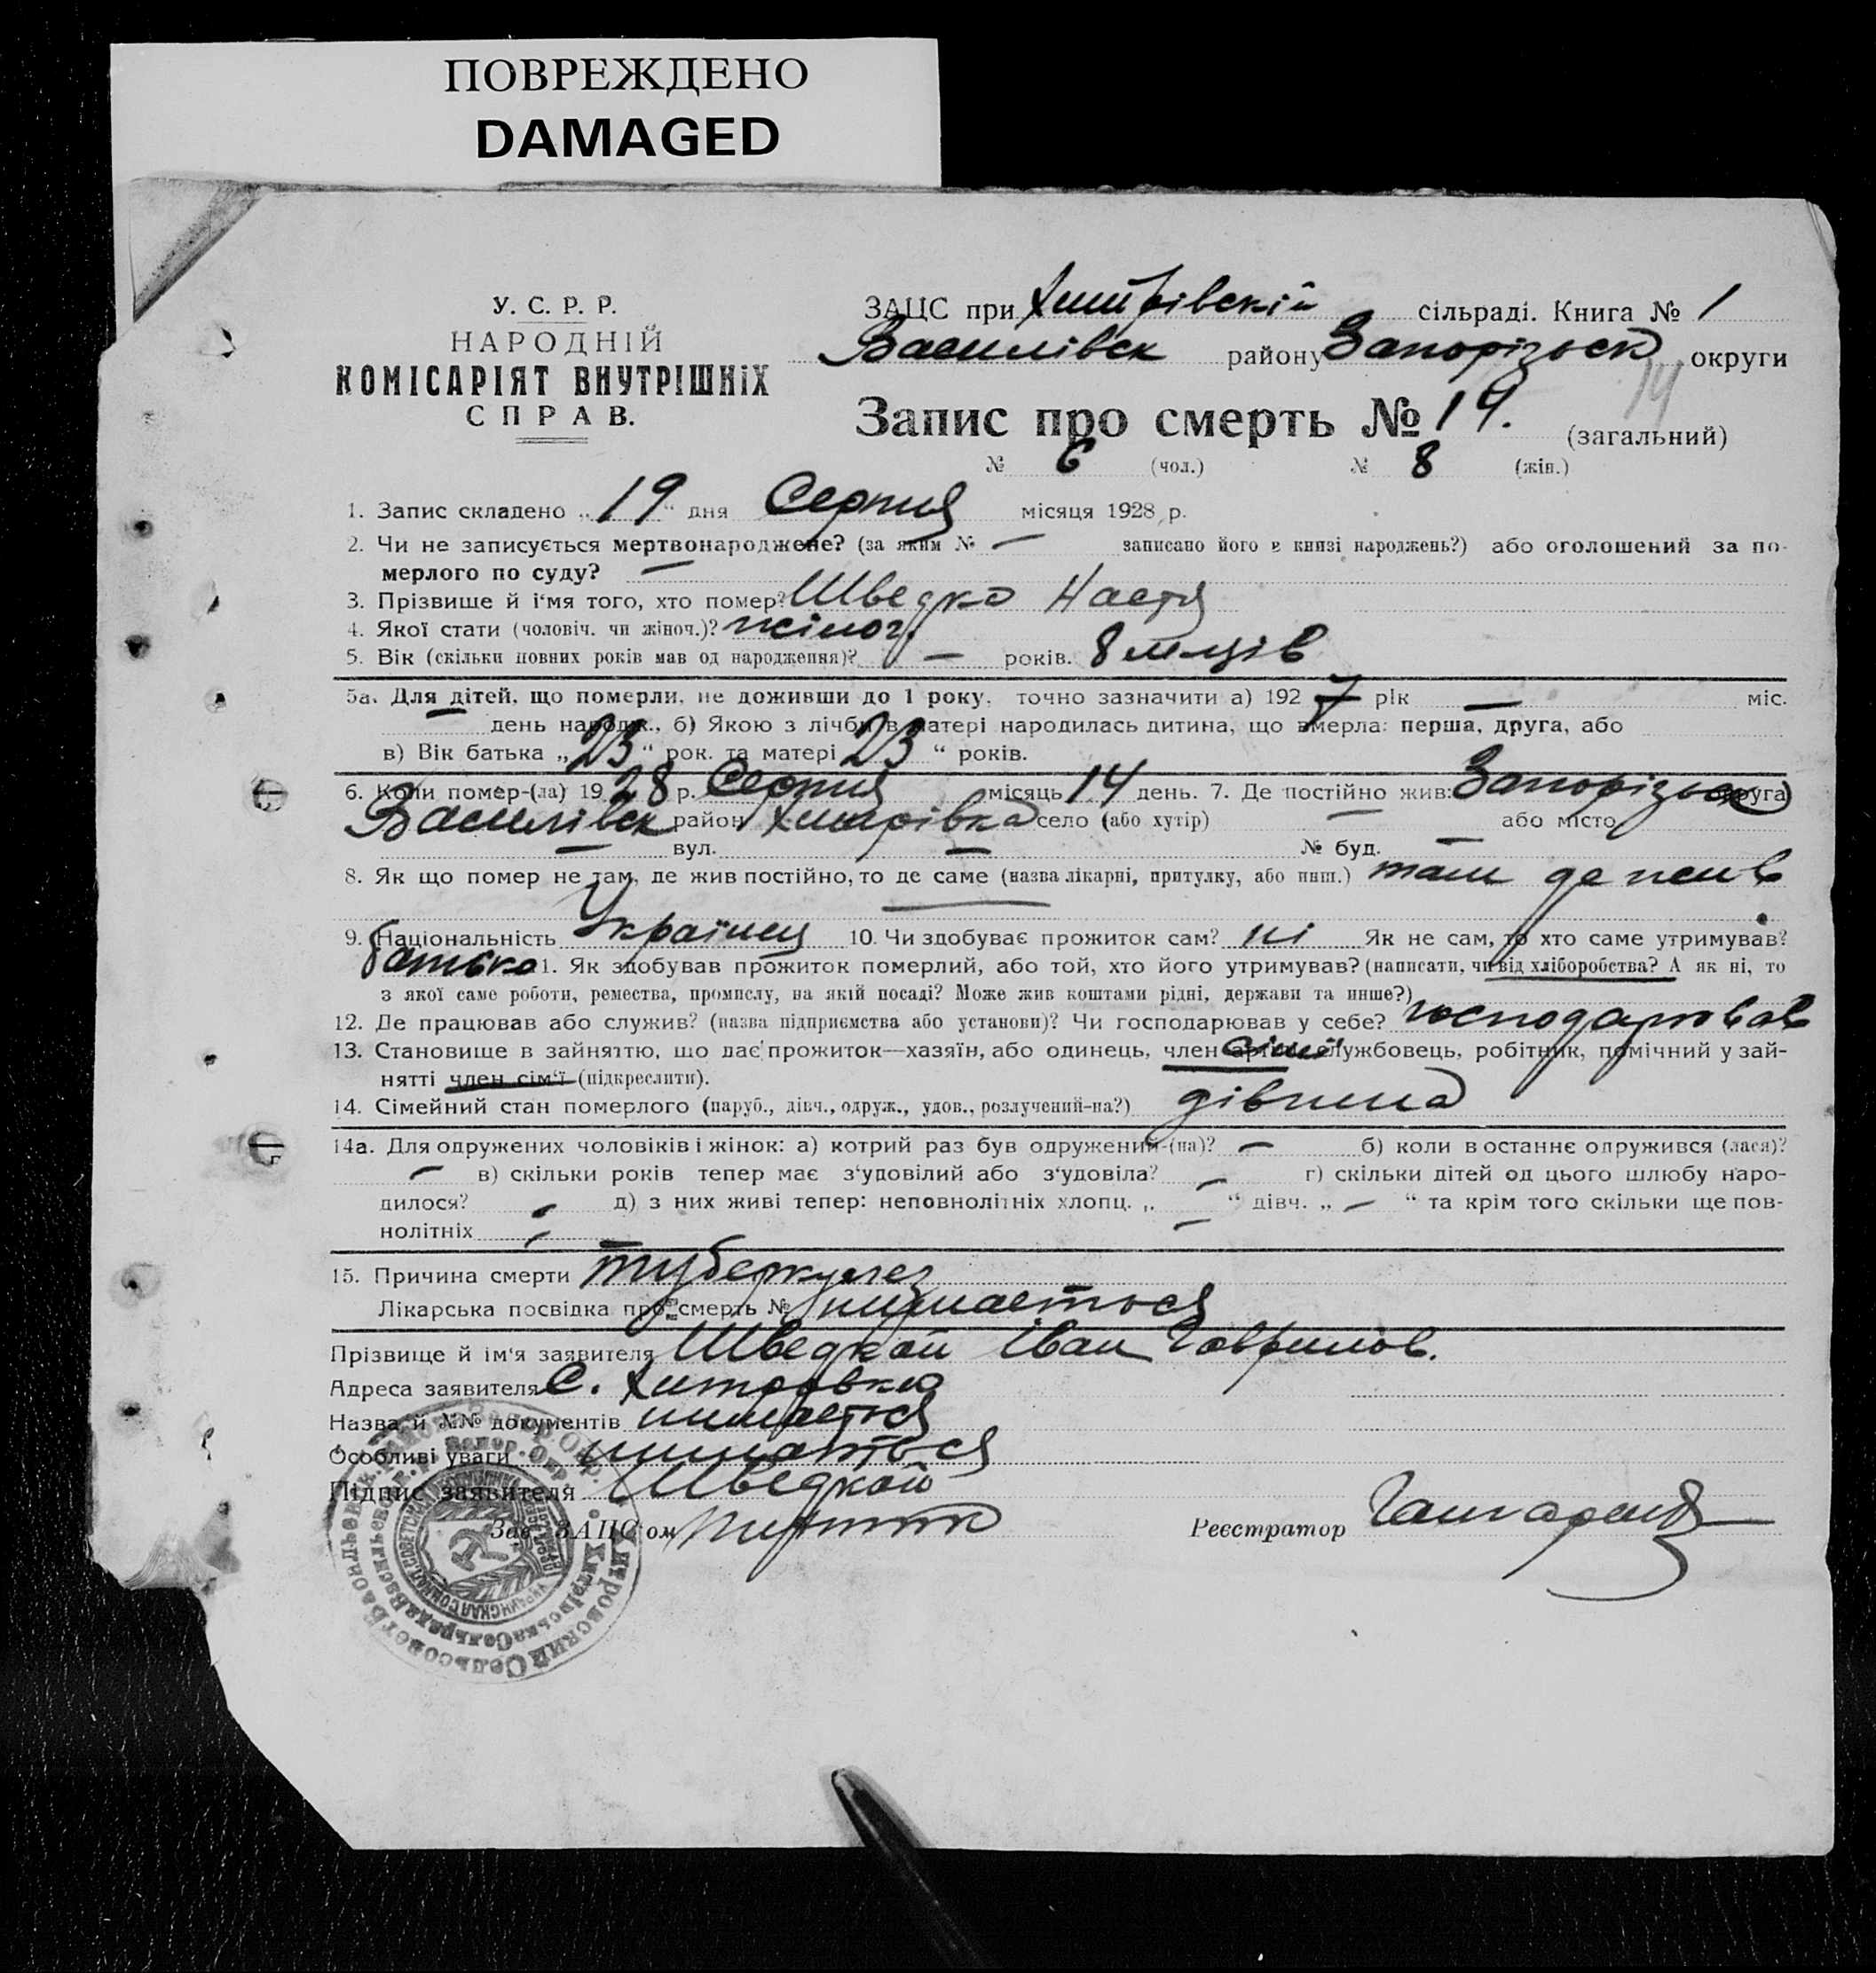 ПОВРЕЖДЕНО
DAMAGED
У. С. Р. Р.
НАРОДНІЙ
КОМІСАРІЯТ ВНУТРІШНІХ
СПРАВ.
ЗАЦС при Хитрівскій сільраді. Книга № 1
Василівск району Запорізьск округи
14
Запис про смерть № 19. (загальний)
№ 6 (чол.) № 8 (жін.)
1. Запис складено „ 19 “ дня Серпня місяця 1928 р.
2. Чи не записується мертвонароджене? (за яким № — записано його в книзі народжень?) або оголошений за по-
мерлого по суду? —
3. Прізвище й і'мя того, хто помер? Шведко Настя
4. Якої стати (чоловіч. чи жіноч.)? жіноч.
5. Вік (скільки повних років мав од народження)? — років. 8 м-ців
5а. Для дітей, що померли, не доживши до 1 року, точно зазначити а) 1927 рік — міс.
— день народж., б) Якою з лічби в матері народилась дитина, що вмерла: перша, друга, або
в) Вік батька „ 23 “ рок. та матері 23 “ років.
6. Коли помер-(ла) 1928 р. Серпня місяць 14 день. 7. Де постійно жив: Запорізьск округа
Василівск район Хитрівка село (або хутір) — або місто
— вул. — № буд. —
8. Як що помер не там, де жив постійно, то де саме (назва лікарні, притулку, або инш.) там де жив
9. Національність Українец 10. Чи здобуває прожиток сам? ні Як не сам, то хто саме утримував?
батько 11. Як здобував прожиток померлий, або той, хто його утримував? (написати, чи від хліборобства? А як ні, то
з якої саме роботи, ремества, промислу, на якій посаді? Може жив коштами рідні, держави та инше?)
12. Де працював або служив? (назва підприємства або установи)? Чи господарював у себе? господарював
13. Становище в зайняттю, що дає прожиток—хазяїн, або одинець, член сімї службовець, робітник, помічний у зай-
нятті член сім'ї (підкреслити).
14. Сімейний стан померлого (паруб., дівч., одруж., удов., розлучений-на?) дівчина
14а. Для одружених чоловіків і жінок: а) котрий раз був одружений-(на)? — б) коли востаннє одружився (лася)?
— в) скільки років тепер має з'удовілий або з'удовіла? — г) скільки дітей од цього шлюбу наро-
дилося? — д) з них живі тепер: неповнолітніх хлопц. „ — “ дівч. „ — “ та крім того скільки ще пов-
нолітніх —
15. Причина смерти туберкульоз
Лікарська посвідка про смерть № нимається
Прізвище й ім'я заявителя Шведкой Іван Гаврилов.
Адреса заявителя С. Хитровка
Назва й №№ документів нимається
Особливі уваги нимається
Підпис заявителя Шведкой
Зав. ЗАЦС'ом
Реєстратор